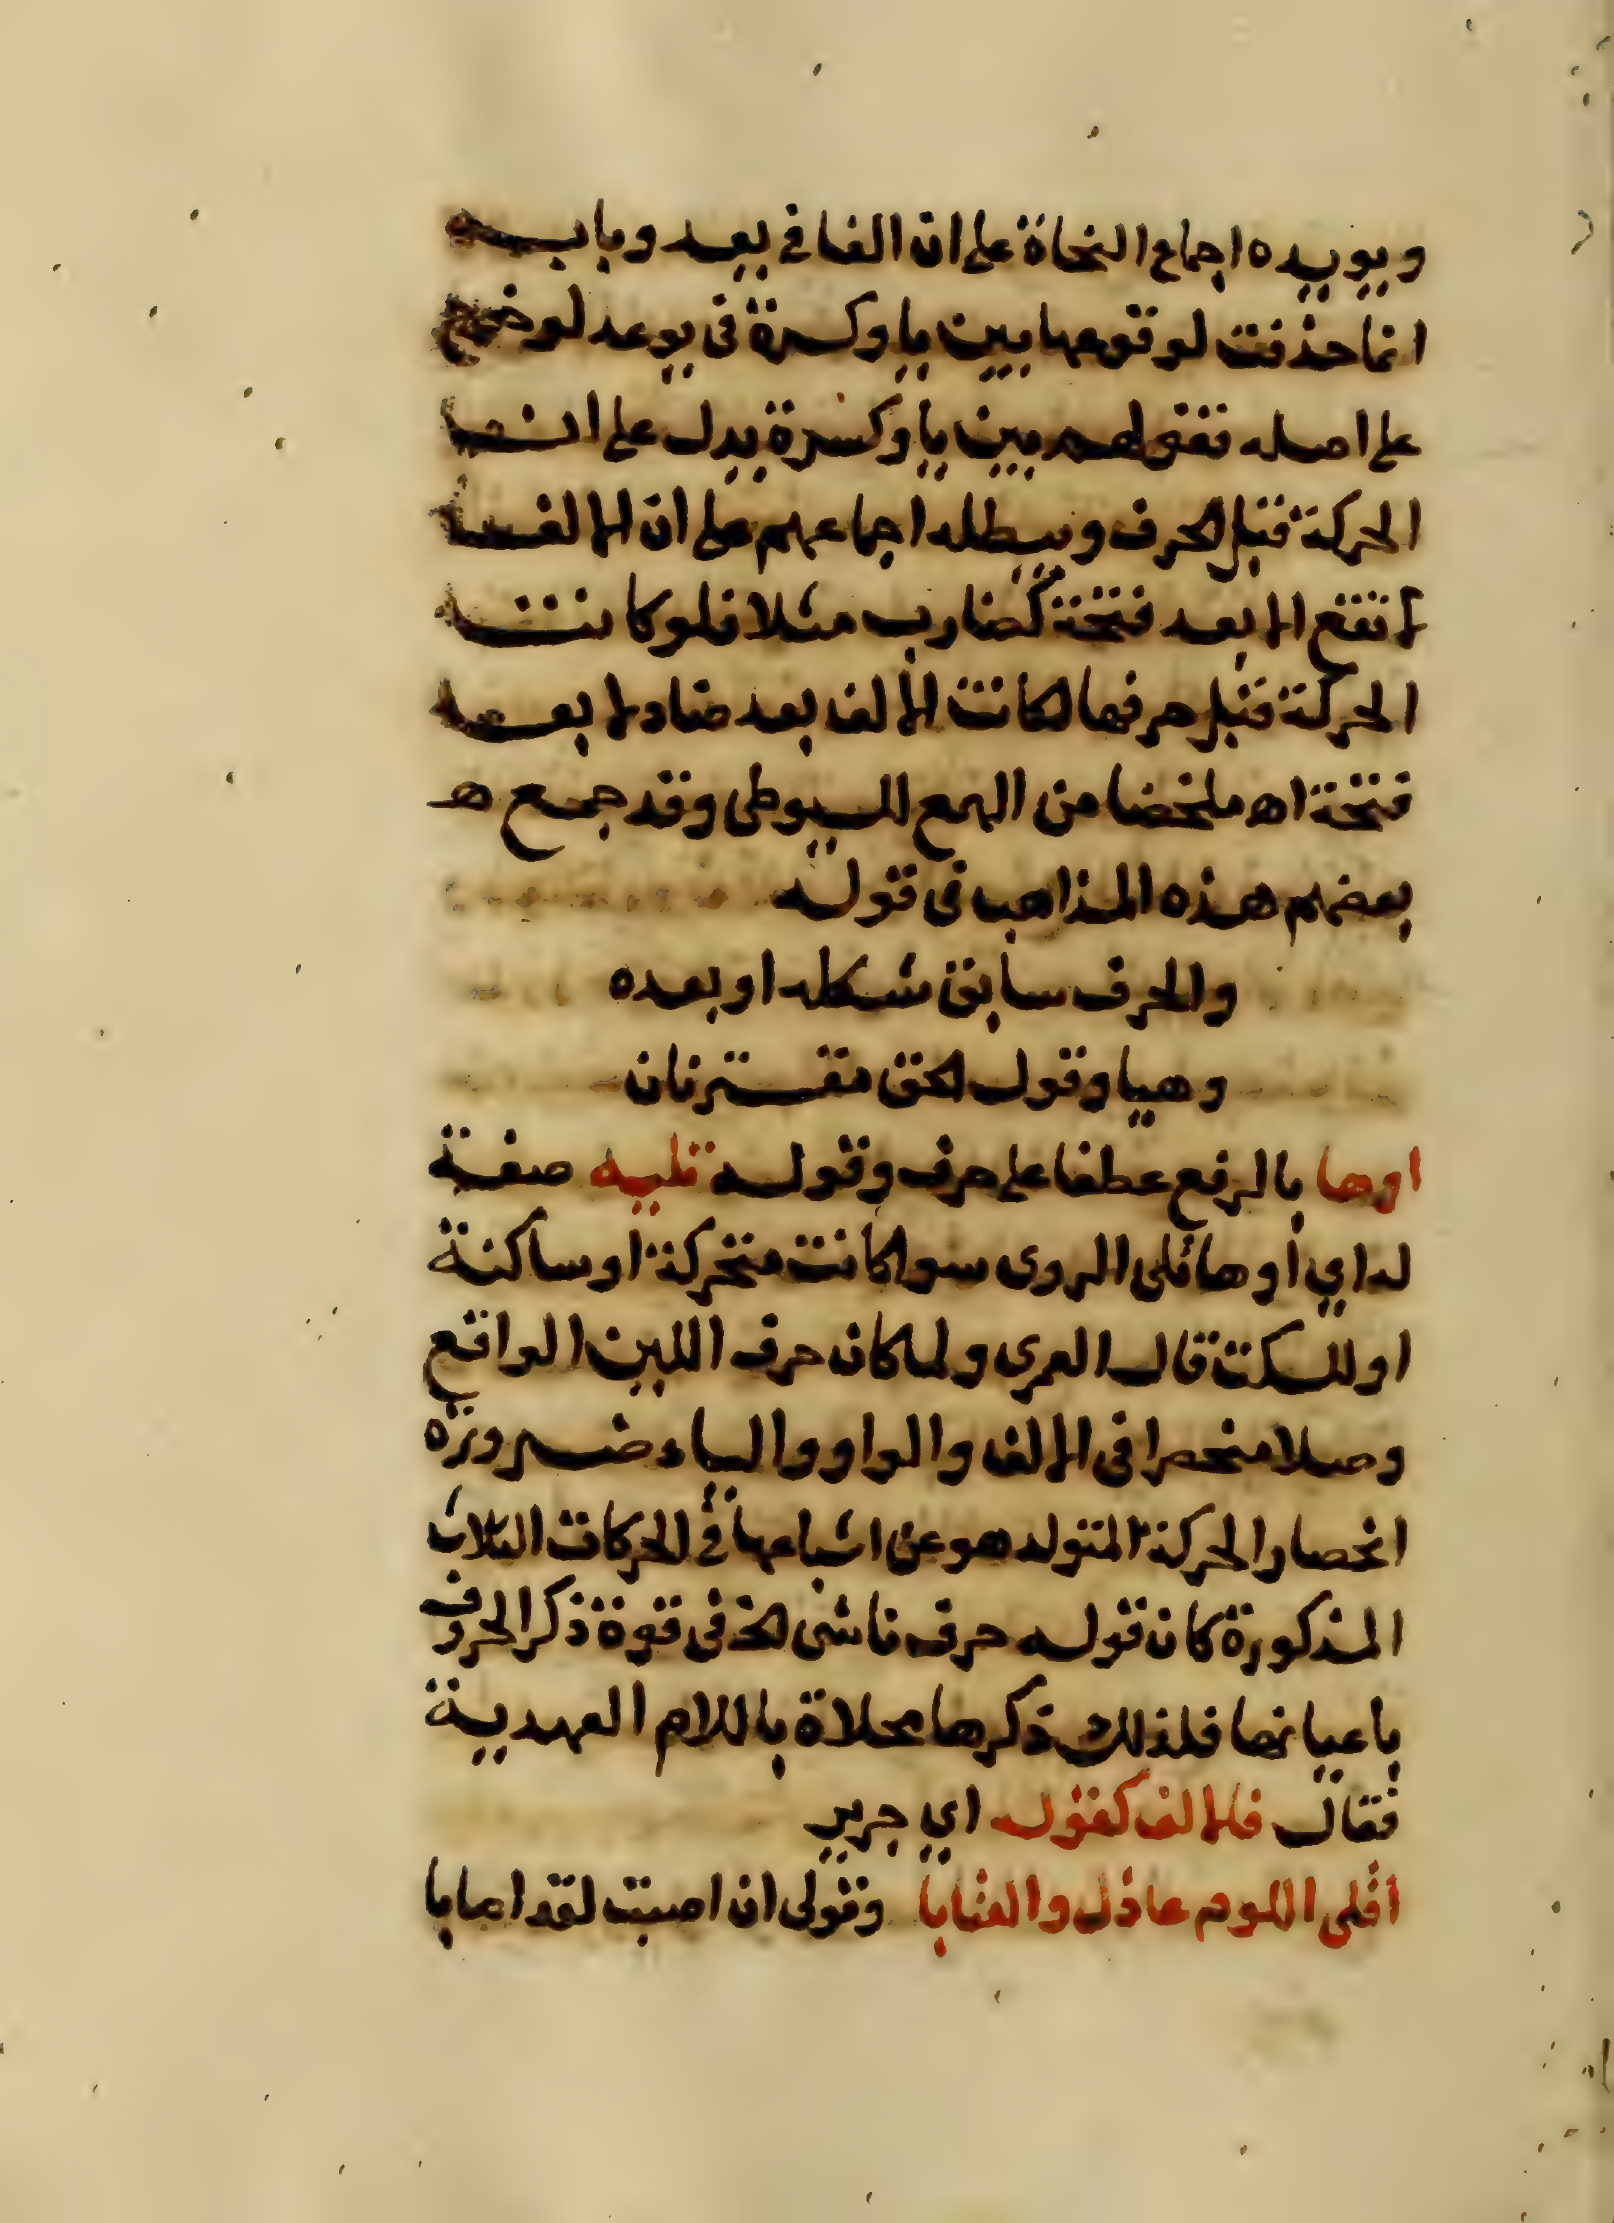 ويويده اجماع النحاة على ان الفا في يعد وبابه
انما حذفت لوقوعها بين يا وكسرة في يوعد لو خرج
على اصله فقولهم بين يا وكسرة يدل على ان
الحركة قبل الحرف ويبطله اجماعهم على ان الالف
لا تقع الا بعد فتحة كضارب مثلا فلو كانت
الحركة قبل حرفها لكانت الالف بعد ضاد لا بعد
فتحة اه ملخصا من الهمع للسيوطي وقد جمع
بعضهم هذه المذاهب في قوله
والحرف سابق شكله او بعده
وهيا وقول لحق مقترنان
اوها بالرفع عطفا على حرف وقوله تليه صفة
له اي او هاتلى الروى سوا كانت متحركة او ساكنة
او للسكت قال العمرى ولما كان حرف اللين الواقع
وصلا منحصرا في الالف والواو والياء ضرورة
انحصار الحركة المتولد هو عن اشباعها في الحركات الثلاث
المذكورة كان قوله حرف ناشى الخ فى قوة ذكر الحروف
باعيانها فلذلك ذكرها محلاة باللام العهدية
فقال فالالف كقوله اي جرير
اقلى اللوم عاذل والعتابا وقولى ان اصبت لقد اصابا